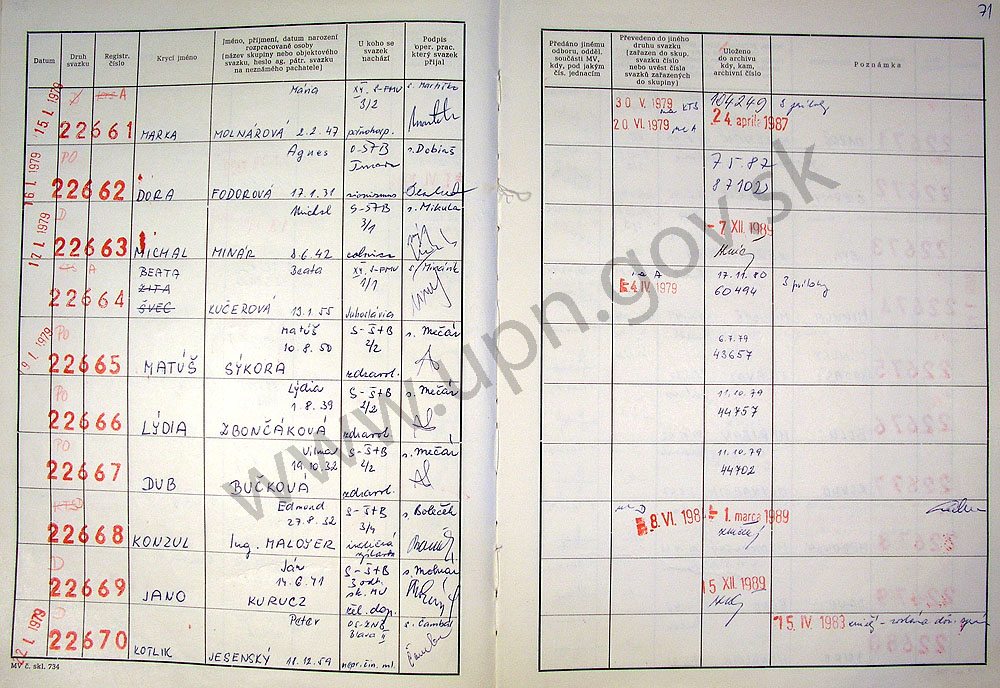 71
Datum
Druh svazku
Registr. číslo
Krycí jméno
Jméno, příjmení, datum narození rozpracované osoby
(název skupiny nebo objektového svazku, heslo ag. pátr. svazku na neznámého pachatele)
U koho se svazek nachází
Podpis oper. prac. který svazek přijal
Předáno jinému odboru, odděl. součásti MV, kdy, pod jakým čís. jednacím
Převedeno do jiného druhu svazku (zařazen do skup. svazku číslo nebo uvést čísla svazků zařazených do skupiny)
Uloženo do archivu kdy, kam, archivní číslo
Poznámka
15. I. 1979
A
22661
MARKA
Mária
MOLNÁROVÁ 2.2.47
XII. S-FMV
3/2
30 V. 1979 KTS
20 VI. 1979
104249
24. apríla 1987
3 prílohy
16 I. 1979
PO
22662
DORA
Agnes
FODOROVÁ 17.1.31
sionizmus
s. Dobiáš
7.5.87
87102
17 I. 1979
D
22663
MICHAL
Michal
MINÁR 8.6.42
3/1
colnica
s. Mikula
7 XII. 1989
A
22664
BEATA
ŽITA
ŠVEC
Beata
KUČEROVÁ 19.1.55
1/1
Juhoslávia
4 IV. 1979
17.11.80
60494
3 prílohy
19. I. 1979
PO
22665
MATÚŠ
Matúš
10.8.50
SÝKORA
S-ŠtB
2/2
zdravot.
s. Mečár
6.7.79
43657
PO
22666
LÝDIA
Lýdia
1.8.39
ZBONČÁKOVÁ
S-ŠtB
2/2
zdravot.
s. Mečár
11.10.79
44757
PO
22667
DUB
Vilma
19.10.32
BUČKOVÁ
S-ŠtB
2/2
zdravot.
s. Mečár
11.10.79
44702
22668
KONZUL
Edmond
27.8.32
Ing. MALOYER
S-ŠtB
3/4
s. Boleček
8. VI. 198
1. marca 1989
D
22669
JANO
Ján
14.6.41
KURUCZ
S-ŠtB
3 odb.
s. Molnár
15 XII. 1989
22 I. 1979
D
22670
KOTLIK
Peter
JESENSKÝ 18.12.59
s. Čambál
15. IV 1983
MV č. skl. 734
www.upn.gov.sk